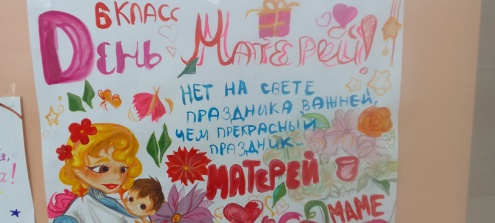 6 КЛАСС
ДЕНЬ МАТЕРЕЙ!
НЕТ НА СВЕТЕ
ПРАЗДНИКА ВАЖНЕЙ,
ЧЕМ ПРЕКРАСНЫЙ
ПРАЗДНИК...
МАТЕРЕЙ
МАМЕ
а!